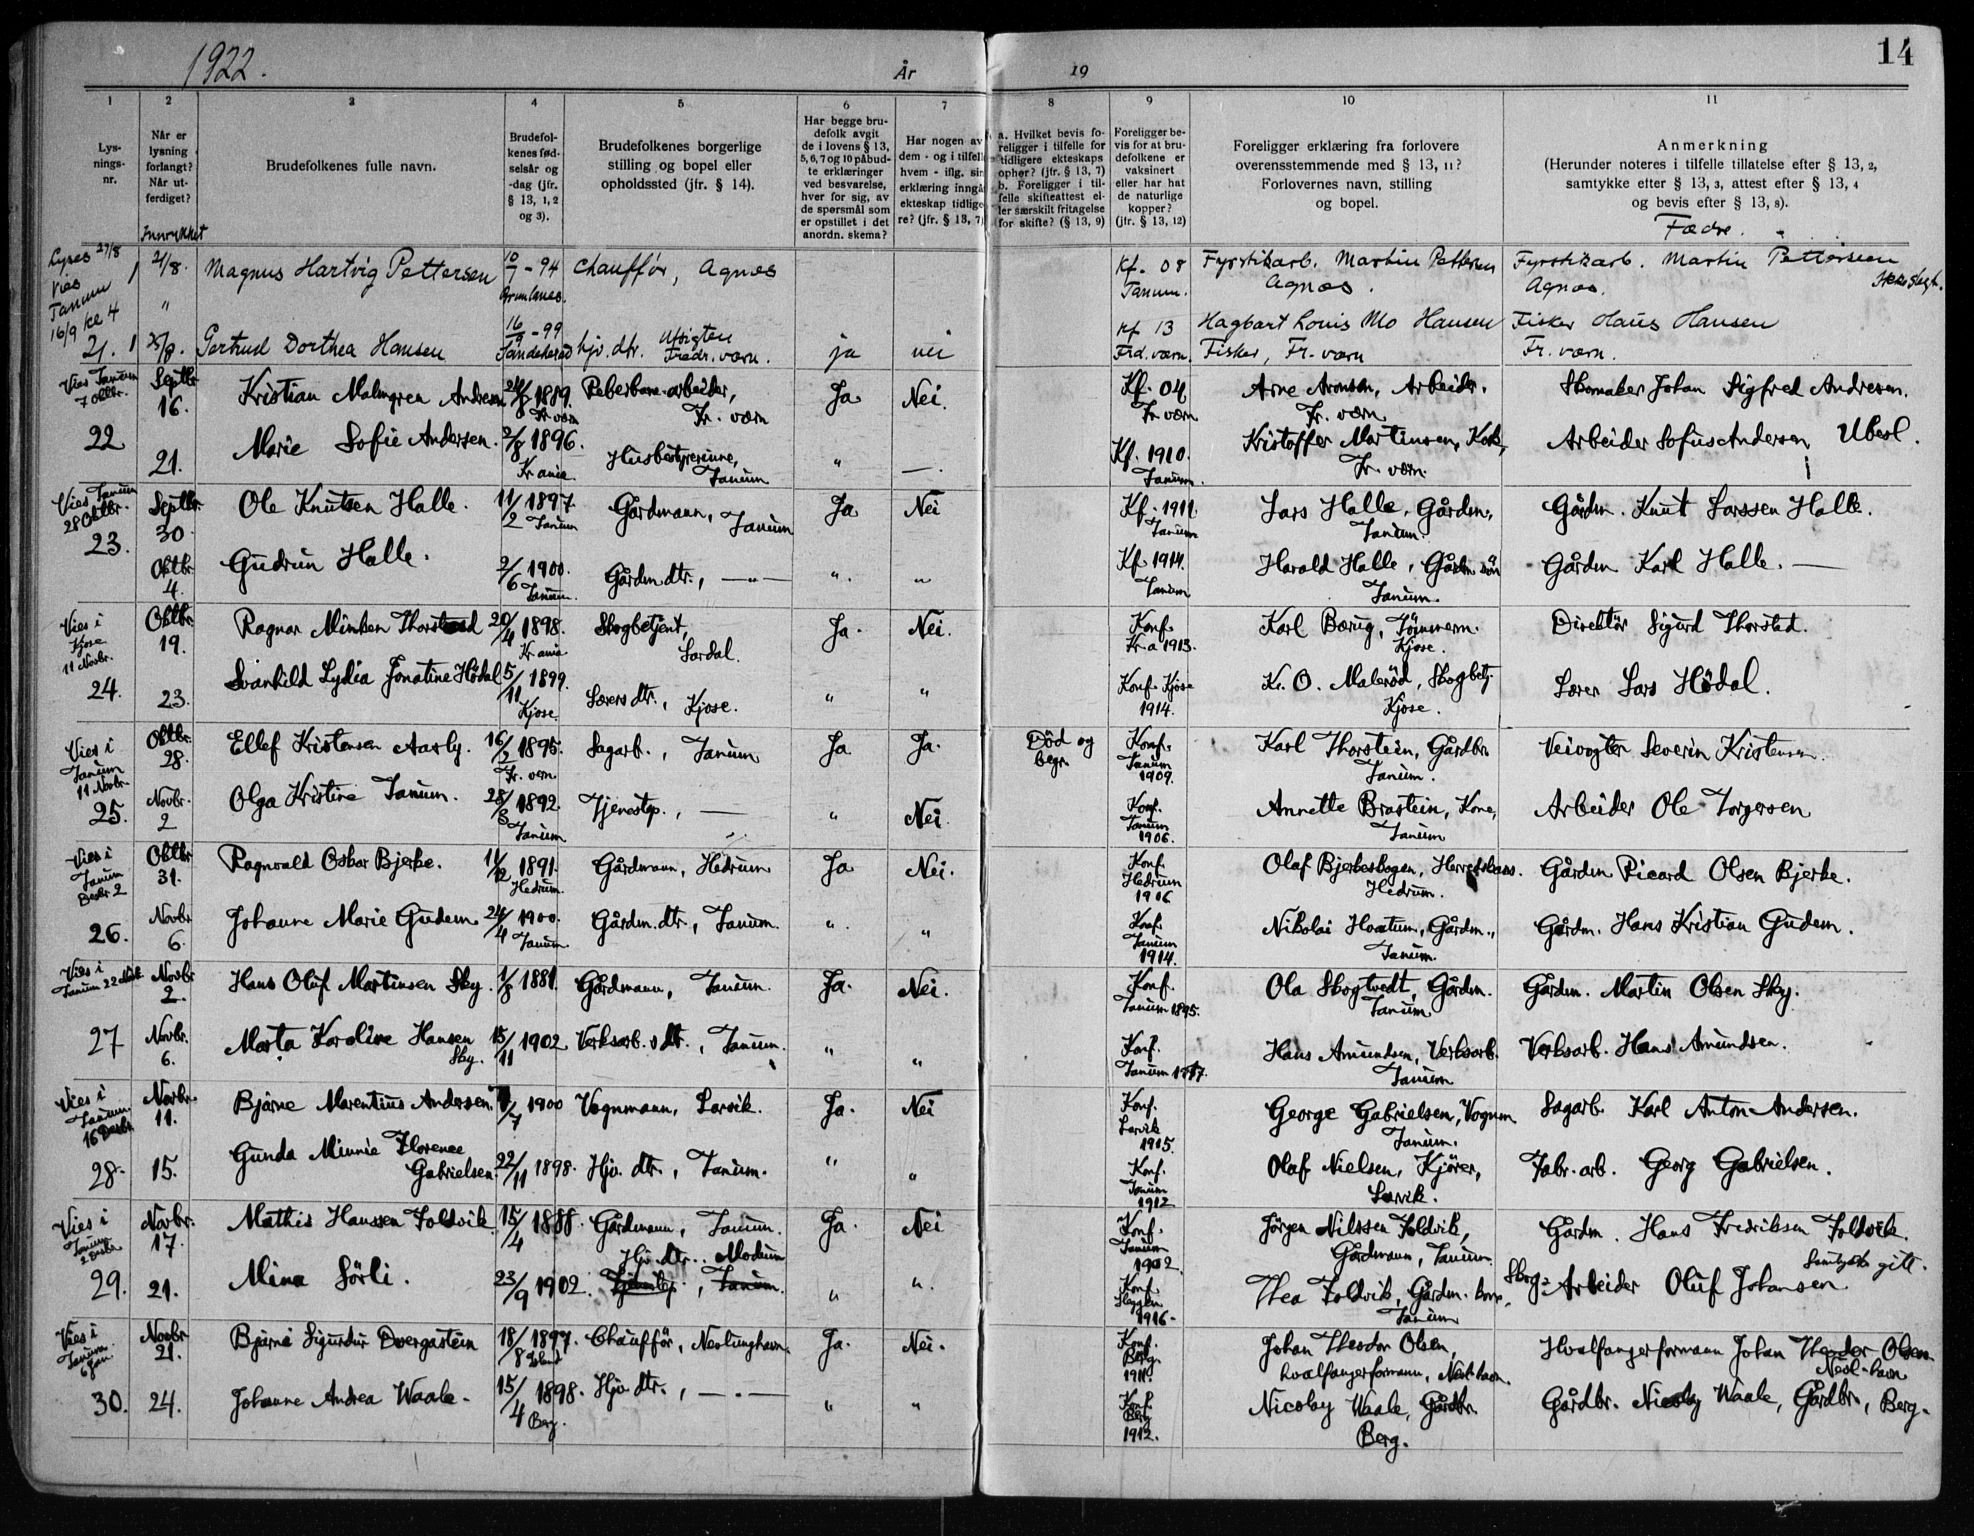 1922.
År
19
14
1
2
3
4
5
6
7
8
9
10
11
Lys-
nings-
nr.
Når er
lysning
forlangt?
Når ut-
ferdiget?
Brudefolkenes fulle navn.
Brudefol-
kenes fød-
selsår og
-dag (jfr.
§ 13, 1, 2
og 3).
Brudefolkenes borgerlige
stilling og bopel eller
opholdssted (jfr. § 14).
Har begge bru-
defolk avgit
de i lovens § 13,
5, 6, 7 og 10 påbud-
te erklæringer
ved besvarelse,
hver for sig, av
de spørsmål som
er opstillet i det
anordn. skema?
Har nogen av
dem - og i tilfelle
hvem - iflg. sin
erklæring inngå
ekteskap tidlige-
re? (jfr. § 13, 7)
a. Hvilket bevis fo-
religger i tilfelle for
tidligere ekteskaps
ophør? (jfr. § 13, 7)
b. Foreligger i til-
felle skifteattest el-
ler særskilt fritagelse
for skifte? (§ 13, 9)
Foreligger be-
vis for at bru-
defolkene er
vaksinert
eller har hat
de naturlige
kopper?
(jfr. § 13, 12)
Foreligger erklæring fra forlovere
overensstemmende med § 13, 11?
Forlovernes navn, stilling
og bopel.
Anmerkning
(Herunder noteres i tilfelle tillatelse efter § 13, 2,
samtykke efter § 13, 3, attest efter § 13, 4
og bevis efter § 13, 8).
Fædre.
Lyses 27/8
Vies
Tanum
16/9 kl 4
21.
21/8. Magnus Hartvig Pettersen 10/7 - 94 Chauffør, Agnes Kf. 08 Tanum. Fyrstikarb. Martin Pettersen Agnes. Fyrstikarb. Martin Pettersen Agnes.
25/8. Gertrud Dorthea Hansen 16/9 - 99 Tandeherad hjv. dtr. Utsigten Fredr. værn. ja nei Kf 13 Frd. værn. Hagbart Louis Mo Hansen Fisker, Fr. værn Fisker Hans Hansen Fr. værn.
Vies Tanum
7 oktbr.
22
Septbr 16. Kristian Malmgren Andresen 1889. Fr værn Peberbane-arbeider, Fr. værn Ja Nei. Kf. 04 Fr værn Arne Aronsen, Arbeider. Fr. værn Skomaker Johan Sigfred Andresen.
21. Marie Sofie Andersen. 2/8 1896. Kr ania Husbestyrerinne, Tanum " —. Kf. 1910. Tanum. Kristoffer Martinsen, Kok, Fr. værn. Arbeider Sofus Andersen Ubesl.
Vies Tanum
28 Oktbr.
23.
Septbr 30. Ole Knutsen Halle. 11/2 1897. Tanum Gårdmann, Tanum Ja Nei Kf. 1911 Tanum Lars Halle, Gårdm., Tanum. Gårdm. Knut Larssen Halle.
Oktbr 4. Gudrun Halle. 2/6 1900. Tanum. Gårdm dtr., —"— " " Kf. 1914. Tanum Harald Halle, Gårdm sön Tanum. Gårdm Karl Halle. —
Vies i
Kjose
11 Novbr.
24.
Oktbr 19. Ragnar Minken Thorsted 20/4 1898. Kr ania Skogbetjent, Lardal. Ja. Nei. Konf. Kr a 1913. Karl Bærug, Tömmerm. Kjose. Direktör Sigurd Thorsted.
23. Svanhild Lydia Jonatine Hödal 5/11 1899. Kjose Lærers dtr., Kjose. " " Konf. Kjose 1914. Kr. O. Maleröd, Skogbetj. Kjose. Lærer Lars Hödal.
Vies i
Tanum
11 Novbr.
25.
Oktbr. 28. Ellef Kristensen Aasly. 16/2 1895. Fr. vern Sagarb., Tanum Ja Ja. Död og begr. Konf. Tanum 1909. Karl Thorstein, Gårdbr Tanum. Veivogter Severin Kristensen.
Novbr. 2 Olga Kristine Tanum. 28/3 1892. Tanum Tjenestp., — " Nei. Konf. Tanum 1906. Annette Brastein, Kone, Tanum Arbeider Ole Torgersen
Vies i
Tanum
Desbr 2
26.
Oktbr 31. Ragnvald Oskar Bjerke. 11/12 1891. Hedrum. Gårdmann, Hedrum Ja Nei. Konf. Hedrum 1906 Olaf Bjerkeskogen, Herredskass. Hedrum. Gårdm Ricard Olsen Bjerke.
Novbr 6. Johanne Marie Gudem 24/4 1900. Tanum Gårdm. dtr., Tanum. " " Konf. Tanum 1914. Nikolai Hvatum, Gårdm., Tanum. Gårdm. Hans Kristian Gudem.
Vies i
Tanum 22 Novb.
27
Novbr 2. Hans Oluf Martinsen Sky. 1/8 1881. Gårdmann, Tanum. Ja. Nei. Konf. Tanum 1895. Ola Skogtvedt, Gårdm. Tanum Gårdm. Martin Olsen Sky.
Novbr. 6. Marta Karoline Hansen Sky. 15/11 1902 Verksarb.s dtr., Tanum. " " Konf. Tanum 1917. Hans Amundsen, Verksarb. Tanum Verksarb. Hans Amundsen.
Vies i
Tanum
16 Desbr
28.
Novbr. 11. Bjarne Marentius Andersen. 1900 Vognmann, Larvik. Ja. Nei Konf. Larvik 1915. George Gabrielsen, Vognm Tanum. Sagarb. Karl Anton Andersen.
15. Gunda Minnie Florence Gabrielsen. 22/11 1898. Hjv. dtr., Tanum. " " Konf. Tanum 1912 Olaf Nielsen, Kjörer, Larvik. Fabr. arb. Georg Gabrielsen.
Vies i
Tanum
2 Desbr
29.
Novbr. 17. Mathis Hanssen Foldvik 15/4 1888. Gårdmann, Tanum. Ja. Nei Konf. Tanum 1902. Jörgen Nilssen Foldvik, Gårdmann, Tanum Gårdm. Hans Fredriksen Foldvik.
21. Mina Sörli. 23/9 1902. Hjv. dtr. Modum Tjenestp., Tanum. " " Konf. 1916. Thea Foldvik, Gårdm. kone, Tanum Skog- Arbeider Oluf Johansen. Samtykke gitt.
Vies i
Tanum
6 Jan.
30.
Novbr 21. Bjarne Sigurdur Dvergastein 18/8 1897. Island Chaufför, Nevlunghavn. Ja. Nei. Konf. Berg 1911. Johan Theodor Olsen, hvalfangerformann, Nevl. havn. Hvalfangerformann Johan Theodor Olsen Nevl-havn
24. Johanne Andrea Waale. 15/4 1898. Berg. Hjv. dtr., —.— " " Konf. Berg 1912. Nicolay Waale, Gårdbr. Berg. Gårdbr. Nicolay Waale, Gårdbr., Berg.